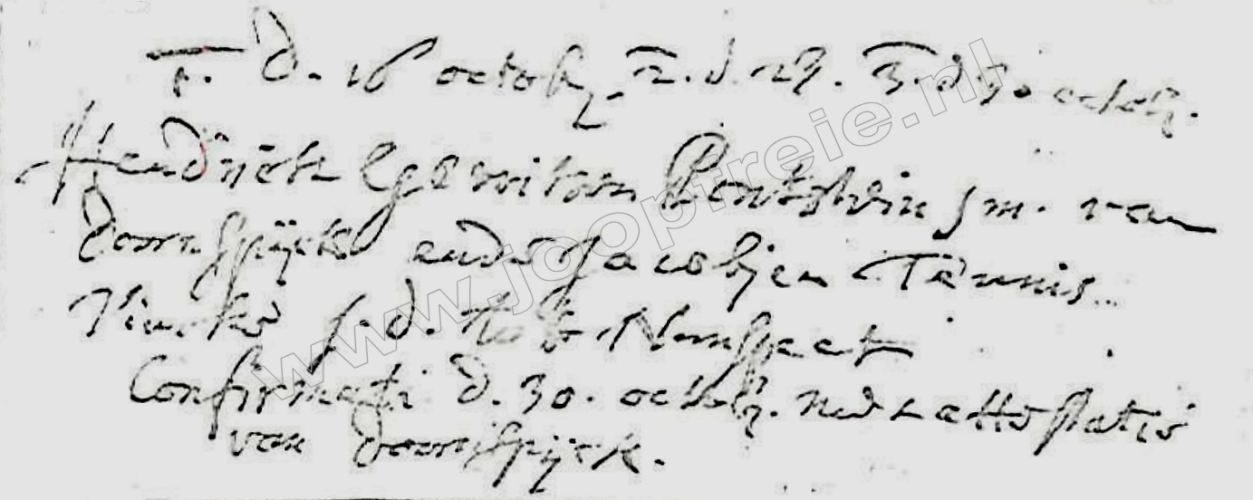 1. d. 16 octob. 2. d. 23. 3. d. 30 octob.
Hendrick Gerritsen j m. van
doornspijck ende Jacobjen Teunis
Vincke j. d. tot Nunspeet
Confirmati d. 30. octob. met attestatie
van doornspijck.
www.jooptreie.nl